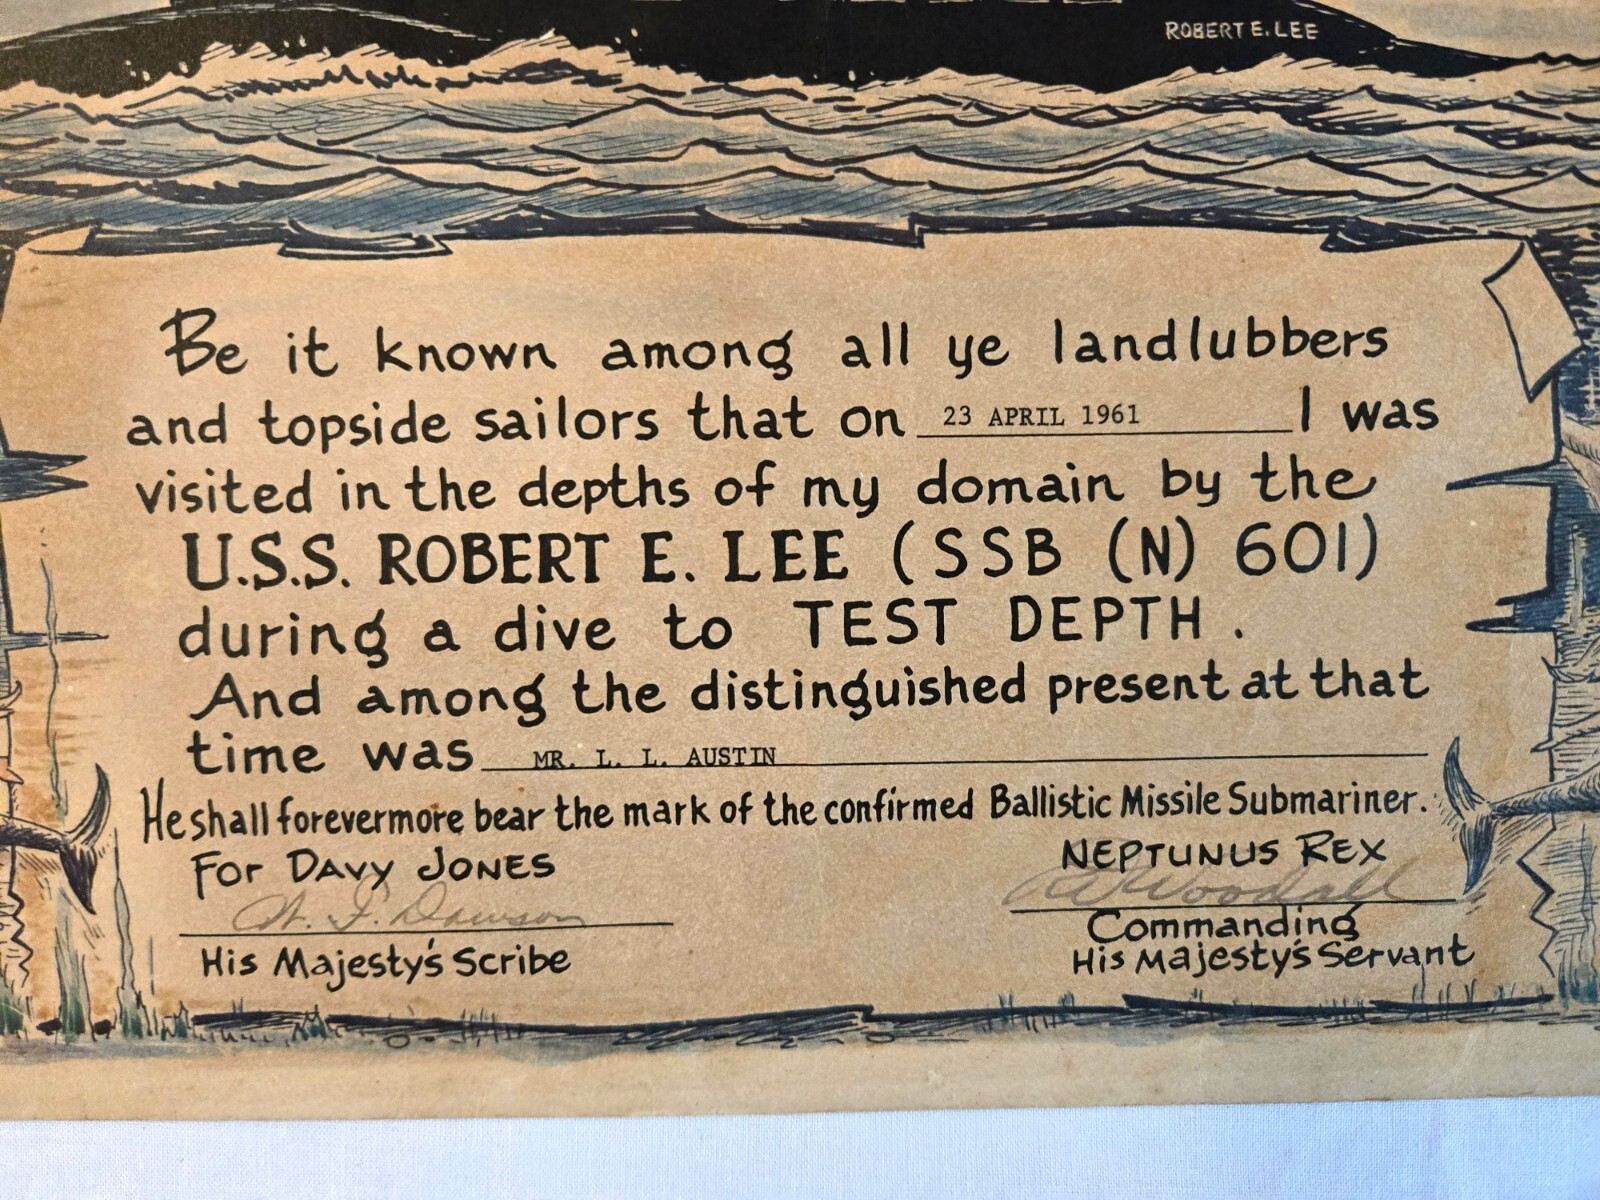 ROBERT E. LEE
Be it known among all ye landlubbers
and topside sailors that on 23 APRIL 1961 I was
visited in the depths of my domain by the
U.S.S. ROBERT E. LEE (SSB (N) 601)
during a dive to TEST DEPTH.
And among the distinguished present at that
time was MR. L. L. AUSTIN
He shall forevermore bear the mark of the confirmed Ballistic Missile Submariner.
For DAVY JONES
NEPTUNUS REX
Dawson
Woodall
His Majesty's Scribe
Commanding
His Majesty's Servant